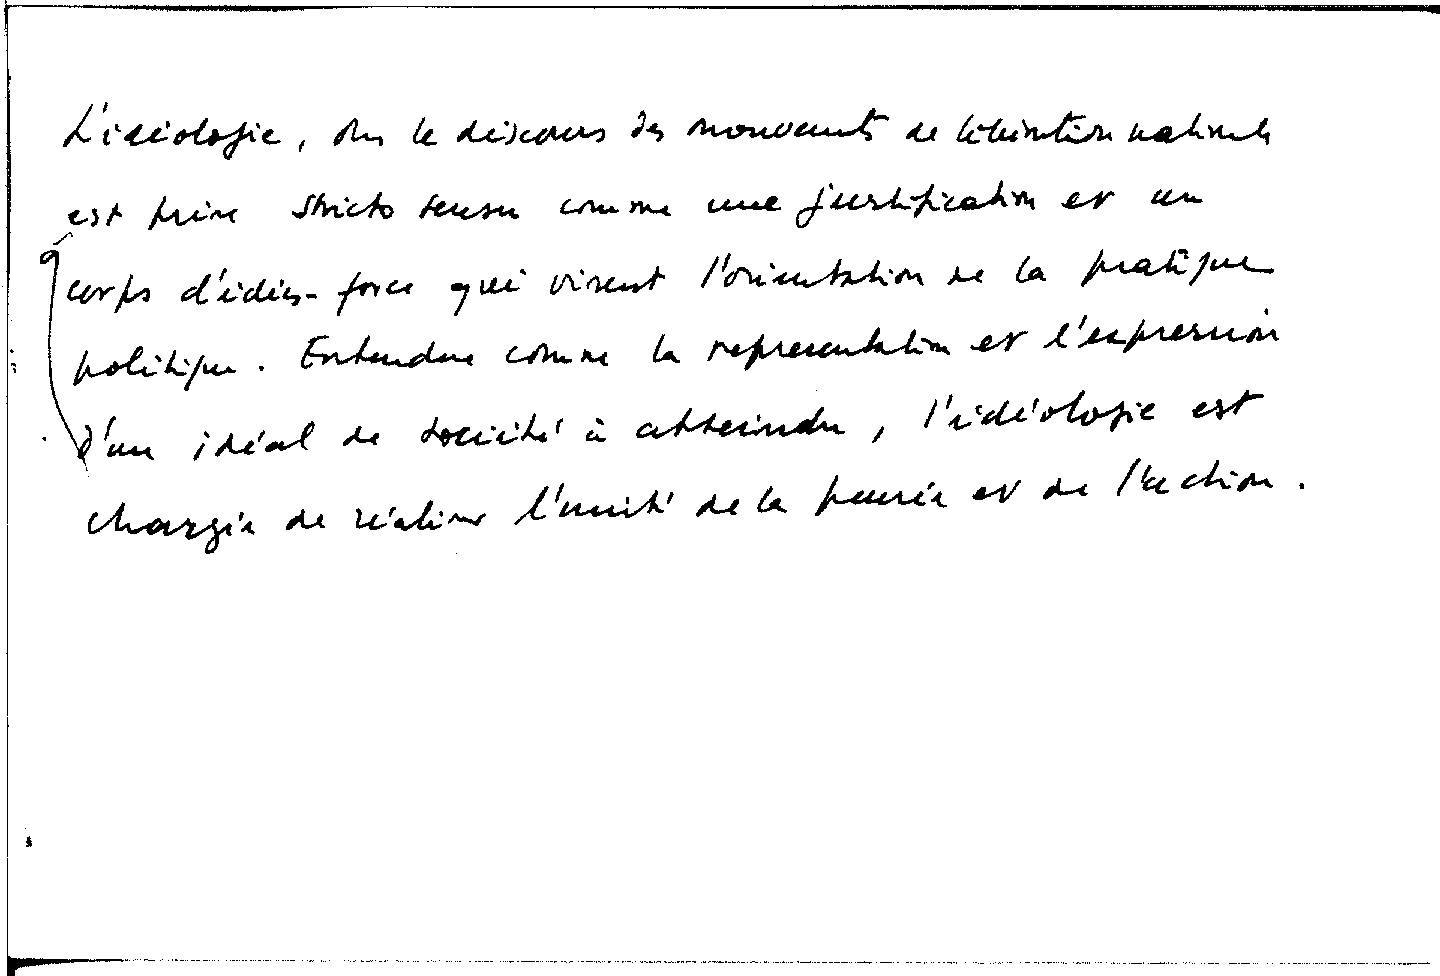 L'idéologie, dans le discours des mouvements de libération nationale
est prise stricto sensu comme une justification et un
corps d'idées-force qui visent l'orientation de la pratique
politique. Entendue comme la représentation et l'expression
d'un idéal de société à atteindre, l'idéologie est
chargée de réaliser l'unité de la pensée et de l'action.